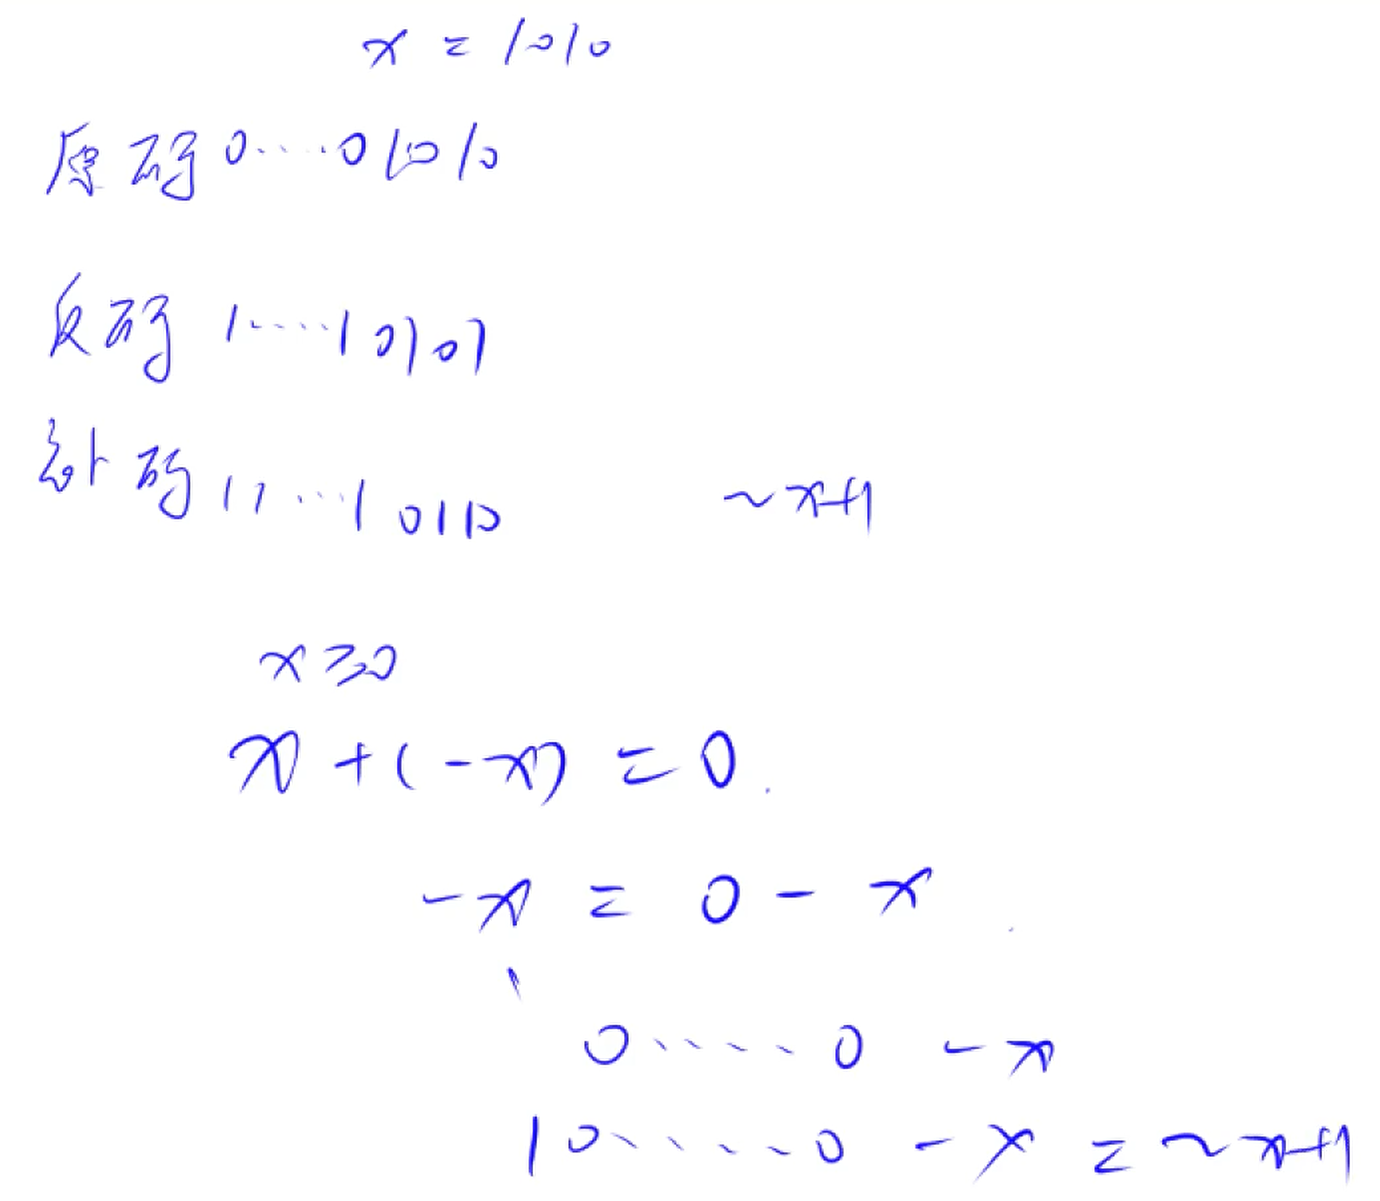 x = 1010
原码 0....01010
反码 1....10101
补码 11...10110
~x+1
x ≥ 0
x + (-x) = 0.
-x = 0 - x
0.....0 -x
10.....0 - x = ~x+1